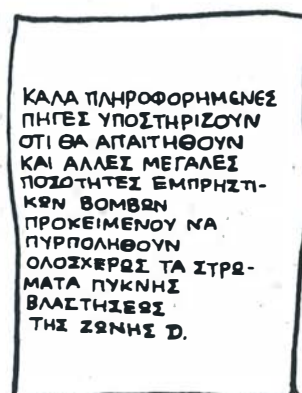 ΚΑΛΑ ΠΛΗΡΟΦΟΡΗΜΕΝΕΣ
ΠΗΓΕΣ ΥΠΟΣΤΗΡΙΖΟΥΝ
ΟΤΙ ΘΑ ΑΠΑΙΤΗΘΟΥΝ
ΚΑΙ ΑΛΛΕΣ ΜΕΓΑΛΕΣ
ΠΟΣΟΤΗΤΕΣ ΕΜΠΡΗΣΤΙ-
ΚΩΝ ΒΟΜΒΩΝ
ΠΡΟΚΕΙΜΕΝΟΥ ΝΑ
ΠΥΡΠΟΛΗΘΟΥΝ
ΟΛΟΣΧΕΡΩΣ ΤΑ ΣΤΡΩ-
ΜΑΤΑ ΠΥΚΝΗΣ
ΒΛΑΣΤΗΣΕΩΣ
ΤΗΣ ΖΩΝΗΣ D.